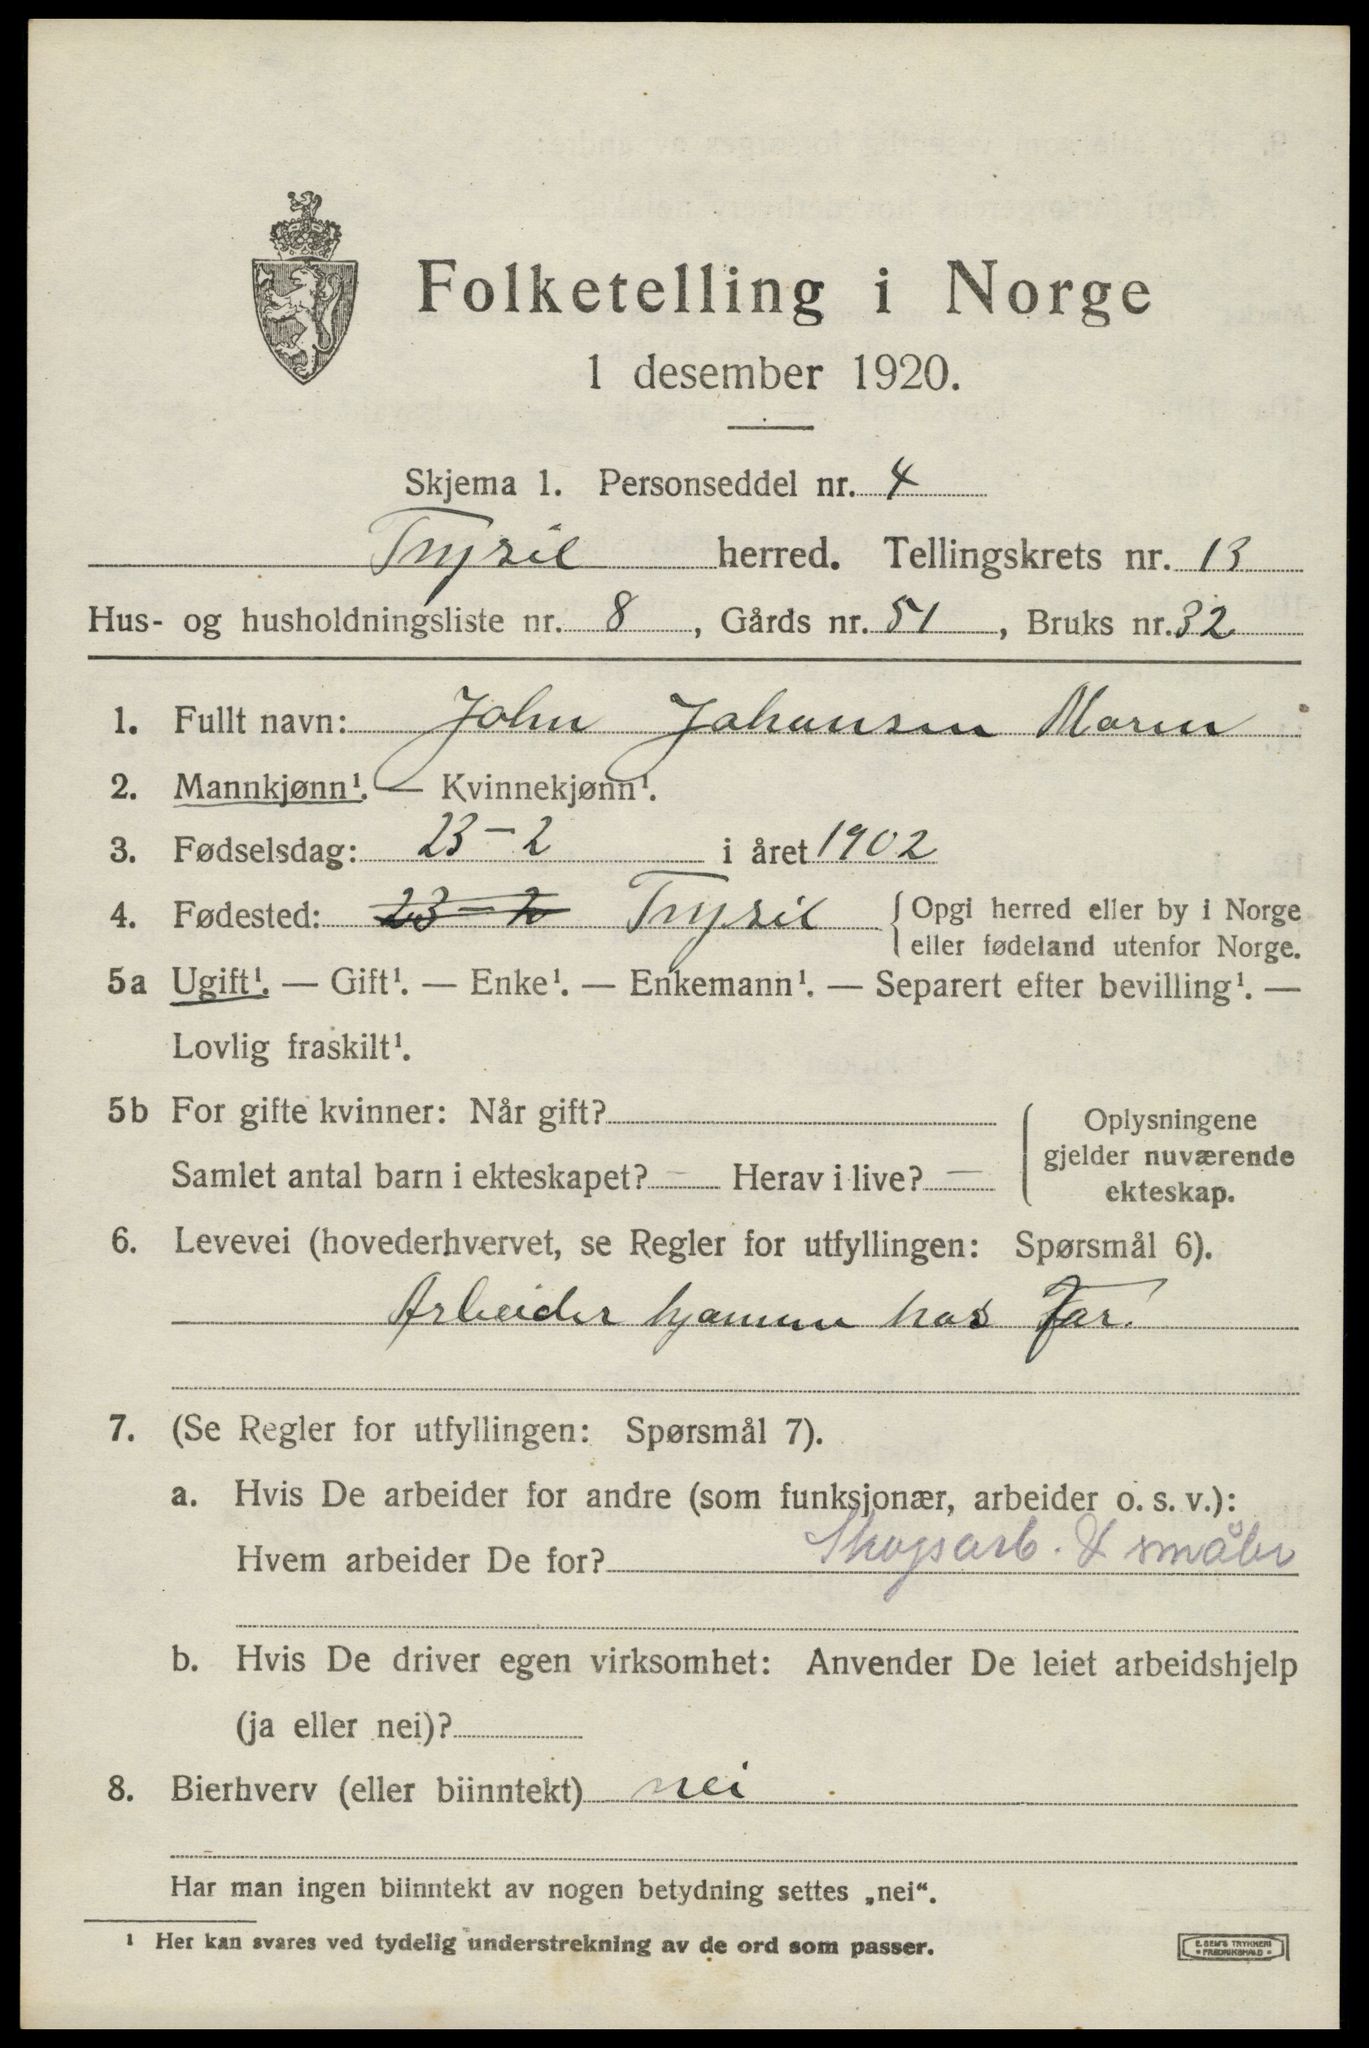 Folketelling i Norge
1 desember 1920.
Skjema 1. Personseddel nr. 4
Trysil herred. Tellingskrets nr. 13
Hus- og husholdningsliste nr. 8, Gårds nr. 51, Bruks nr. 32
1. Fullt navn: John Johansen Moren
2. Mannkjønn¹. — Kvinnekjønn¹.
3. Fødselsdag: 23-2 i året 1902
4. Fødested: 23-2 Trysil {Opgi herred eller by i Norge
eller fødeland utenfor Norge.
5a Ugift¹. — Gift¹. — Enke¹. — Enkemann¹. — Separert efter bevilling¹. —
Lovlig fraskilt¹.
5b For gifte kvinner: Når gift?
Samlet antal barn i ekteskapet? — Herav i live? —
Oplysningene
gjelder nuværende
ekteskap.
6. Levevei (hovederhvervet, se Regler for utfyllingen: Spørsmål 6).
Arbeider hjemme hos Far.
7. (Se Regler for utfyllingen: Spørsmål 7).
a. Hvis De arbeider for andre (som funksjonær, arbeider o. s. v.):
Hvem arbeider De for? Skogsarb. & småbr
b. Hvis De driver egen virksomhet: Anvender De leiet arbeidshjelp
(ja eller nei)?
8. Bierhverv (eller biinntekt) nei
Har man ingen biinntekt av nogen betydning settes „nei“.
¹ Her kan svares ved tydelig understrekning av de ord som passer.
E. SEM'S TRYKKERI
* FREDRIKSHALD *